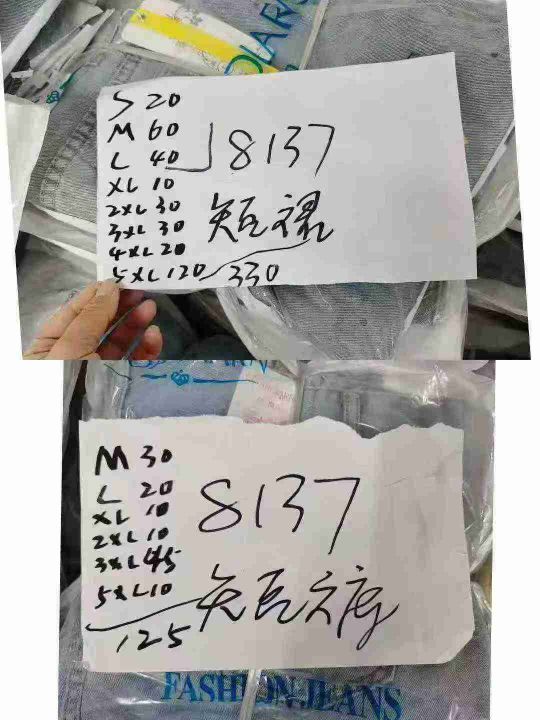 S 20
M 60
L 40
XL 10
2XL 30
3XL 30
4XL 20
5XL 120
330
8137
短裙
M 30
L 20
XL 10
2XL 10
3XL 45
5XL 10
125
8137
FASHION JEANS